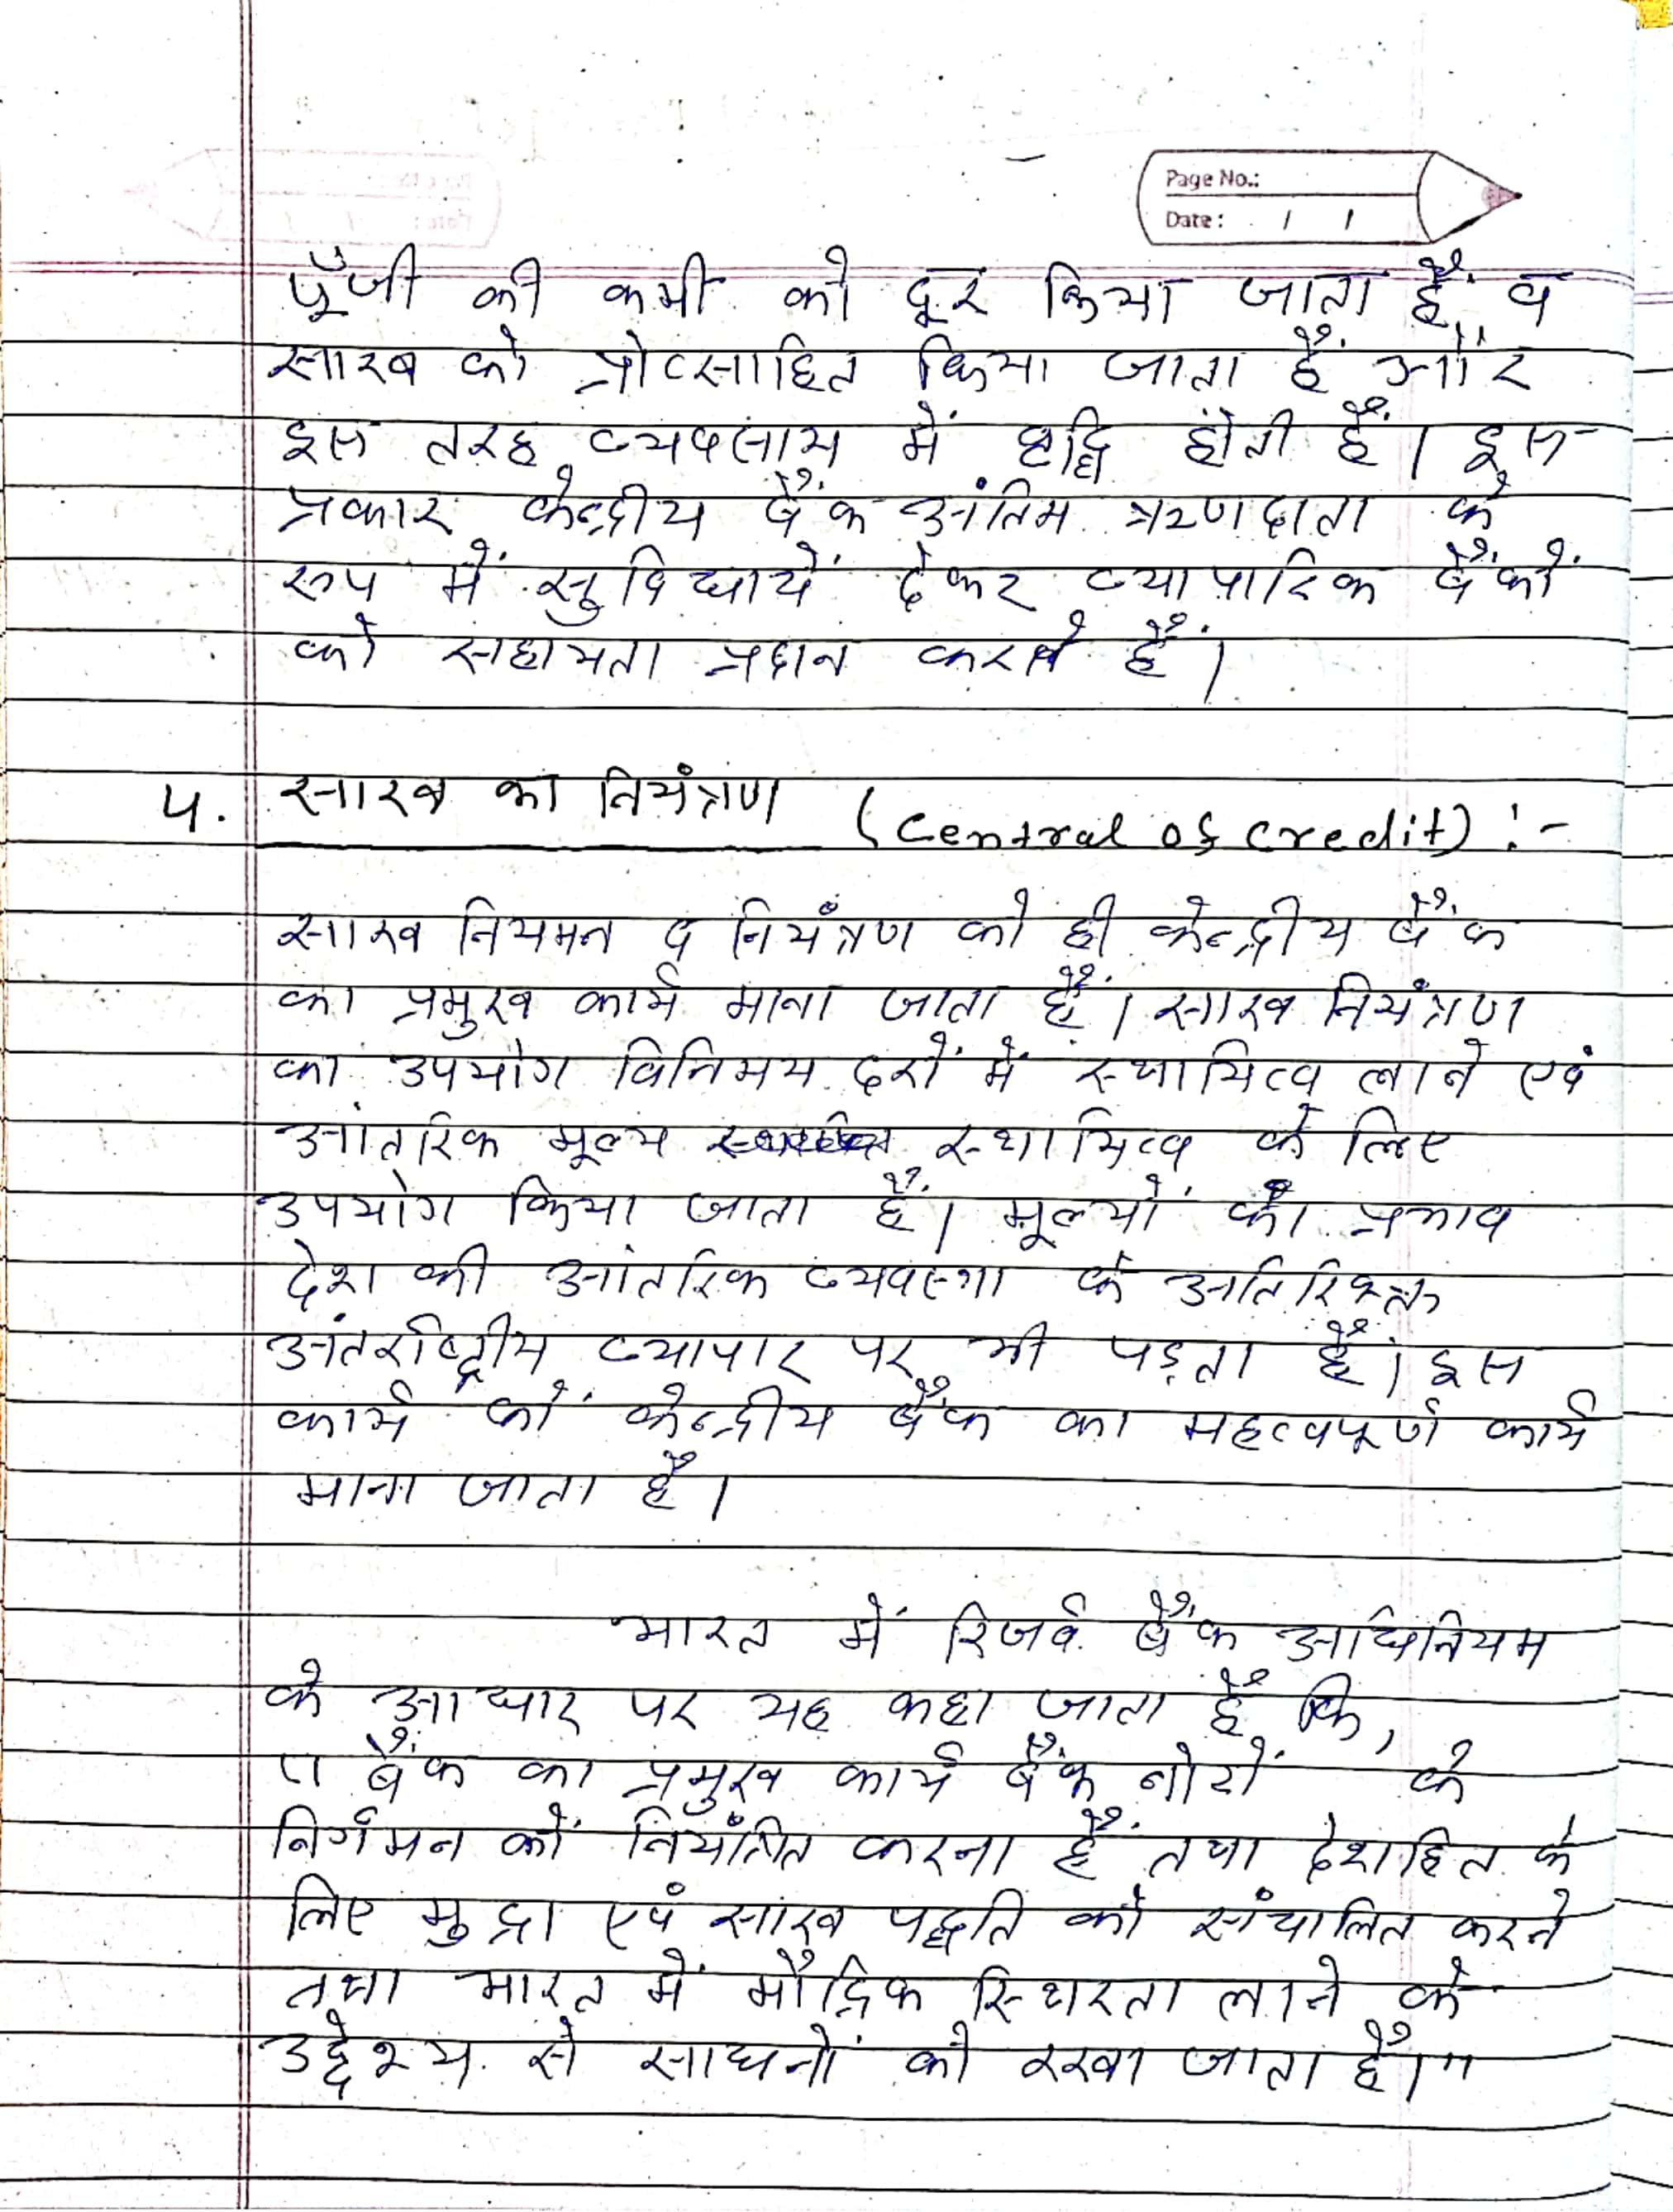 Page No.:
Date: / /
पूँजी की कमी को दूर किया जाता हैं, व
साख को प्रोत्साहित किया जाता हैं और
इस तरह व्यवसाय में वृद्धि होती हैं। इस
प्रकार केन्द्रीय बैंक अंतिम ऋणदाता के
रूप में सुविधायें देकर व्यापारिक बैंकों
को सहायता प्रदान करते हैं।
5. साख का नियंत्रण (Central of credit) :-
साख नियमन व नियंत्रण को ही केन्द्रीय बैंक
का प्रमुख कार्य माना जाता हैं। साख नियंत्रण
का उपयोग विनिमय दरों में स्थायित्व लाने एवं
आंतरिक मूल्य स्थायित्व के लिए
उपयोग किया जाता हैं। मूल्यों का प्रभाव
देश की आंतरिक व्यवस्था के अतिरिक्त
अंतर्राष्ट्रीय व्यापार पर भी पड़ता हैं। इस
कार्य कों केन्द्रीय बैंक का महत्वपूर्ण कार्य
माना जाता है।
भारत में रिजर्व बैंक अधिनियम
के आधार पर यह कहा जाता है कि,
" बैंक का प्रमुख कार्य बैंक नोटों के
निर्गमन कों नियंत्रित करना हैं तथा देशहित के
लिए मुद्रा एवं साख पद्धति को संचालित करने
तथा भारत में मौद्रिक स्थिरता लाने के
उद्देश्य से साधनों को रखा जाता है।"